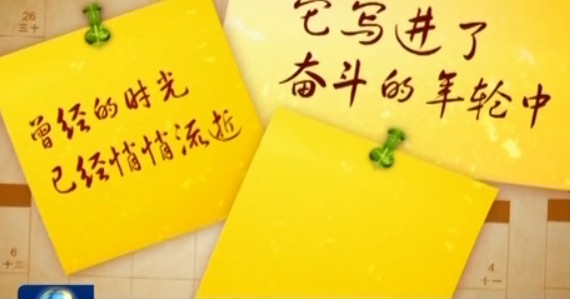 26
三十
曾经的时光
已经悄悄流逝
它写进了
奋斗的年轮中
6
十三